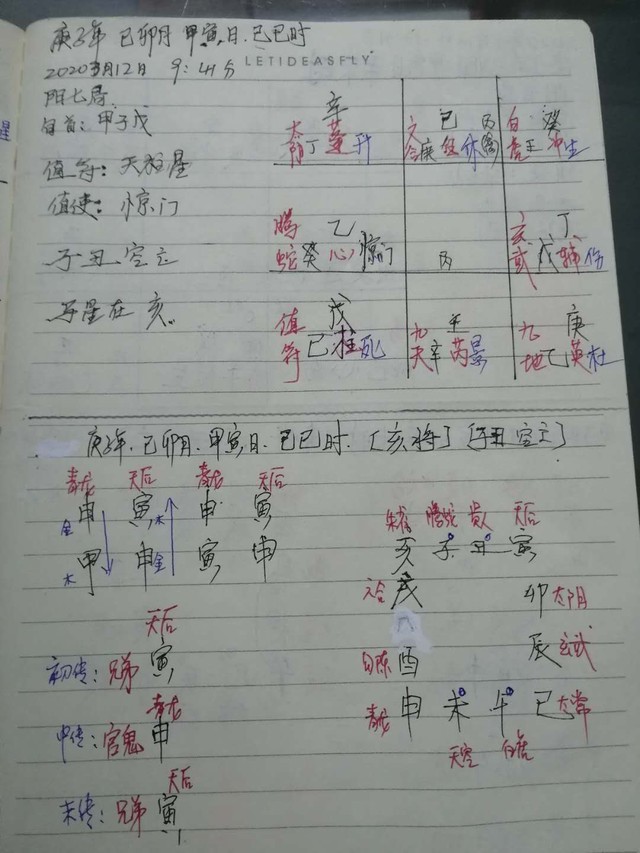 庚子年 己卯月 甲寅日 己巳时
2020年3月12日 9:41分 LETIDEASFLY
阳七局
旬首:甲子戊
值符:天柱星
值使:惊门
子丑空亡
马星在亥
辛
丁蓬升
己 丙
六合庚任休
癸
白虎壬冲生
乙
腾蛇癸心惊门
丙
丁
玄武戊辅伤
戊
值符己柱死
壬
九天辛芮景
庚
九地乙英杜
庚子年.己卯月.甲寅日.己巳时.[亥将][子丑空亡]
青龙 天后 青龙 天后
申 寅 申 寅
金 木
甲 申 寅 申
木 金
朱雀 腾蛇 贵人 天后
亥 子 丑 寅
六合 戌 卯 太阴
酉 辰 玄武
青龙 申 未 午 巳 太常
天空 白虎
天后
初传:兄弟 寅
青龙
中传:官鬼 申
天后
末传:兄弟 寅